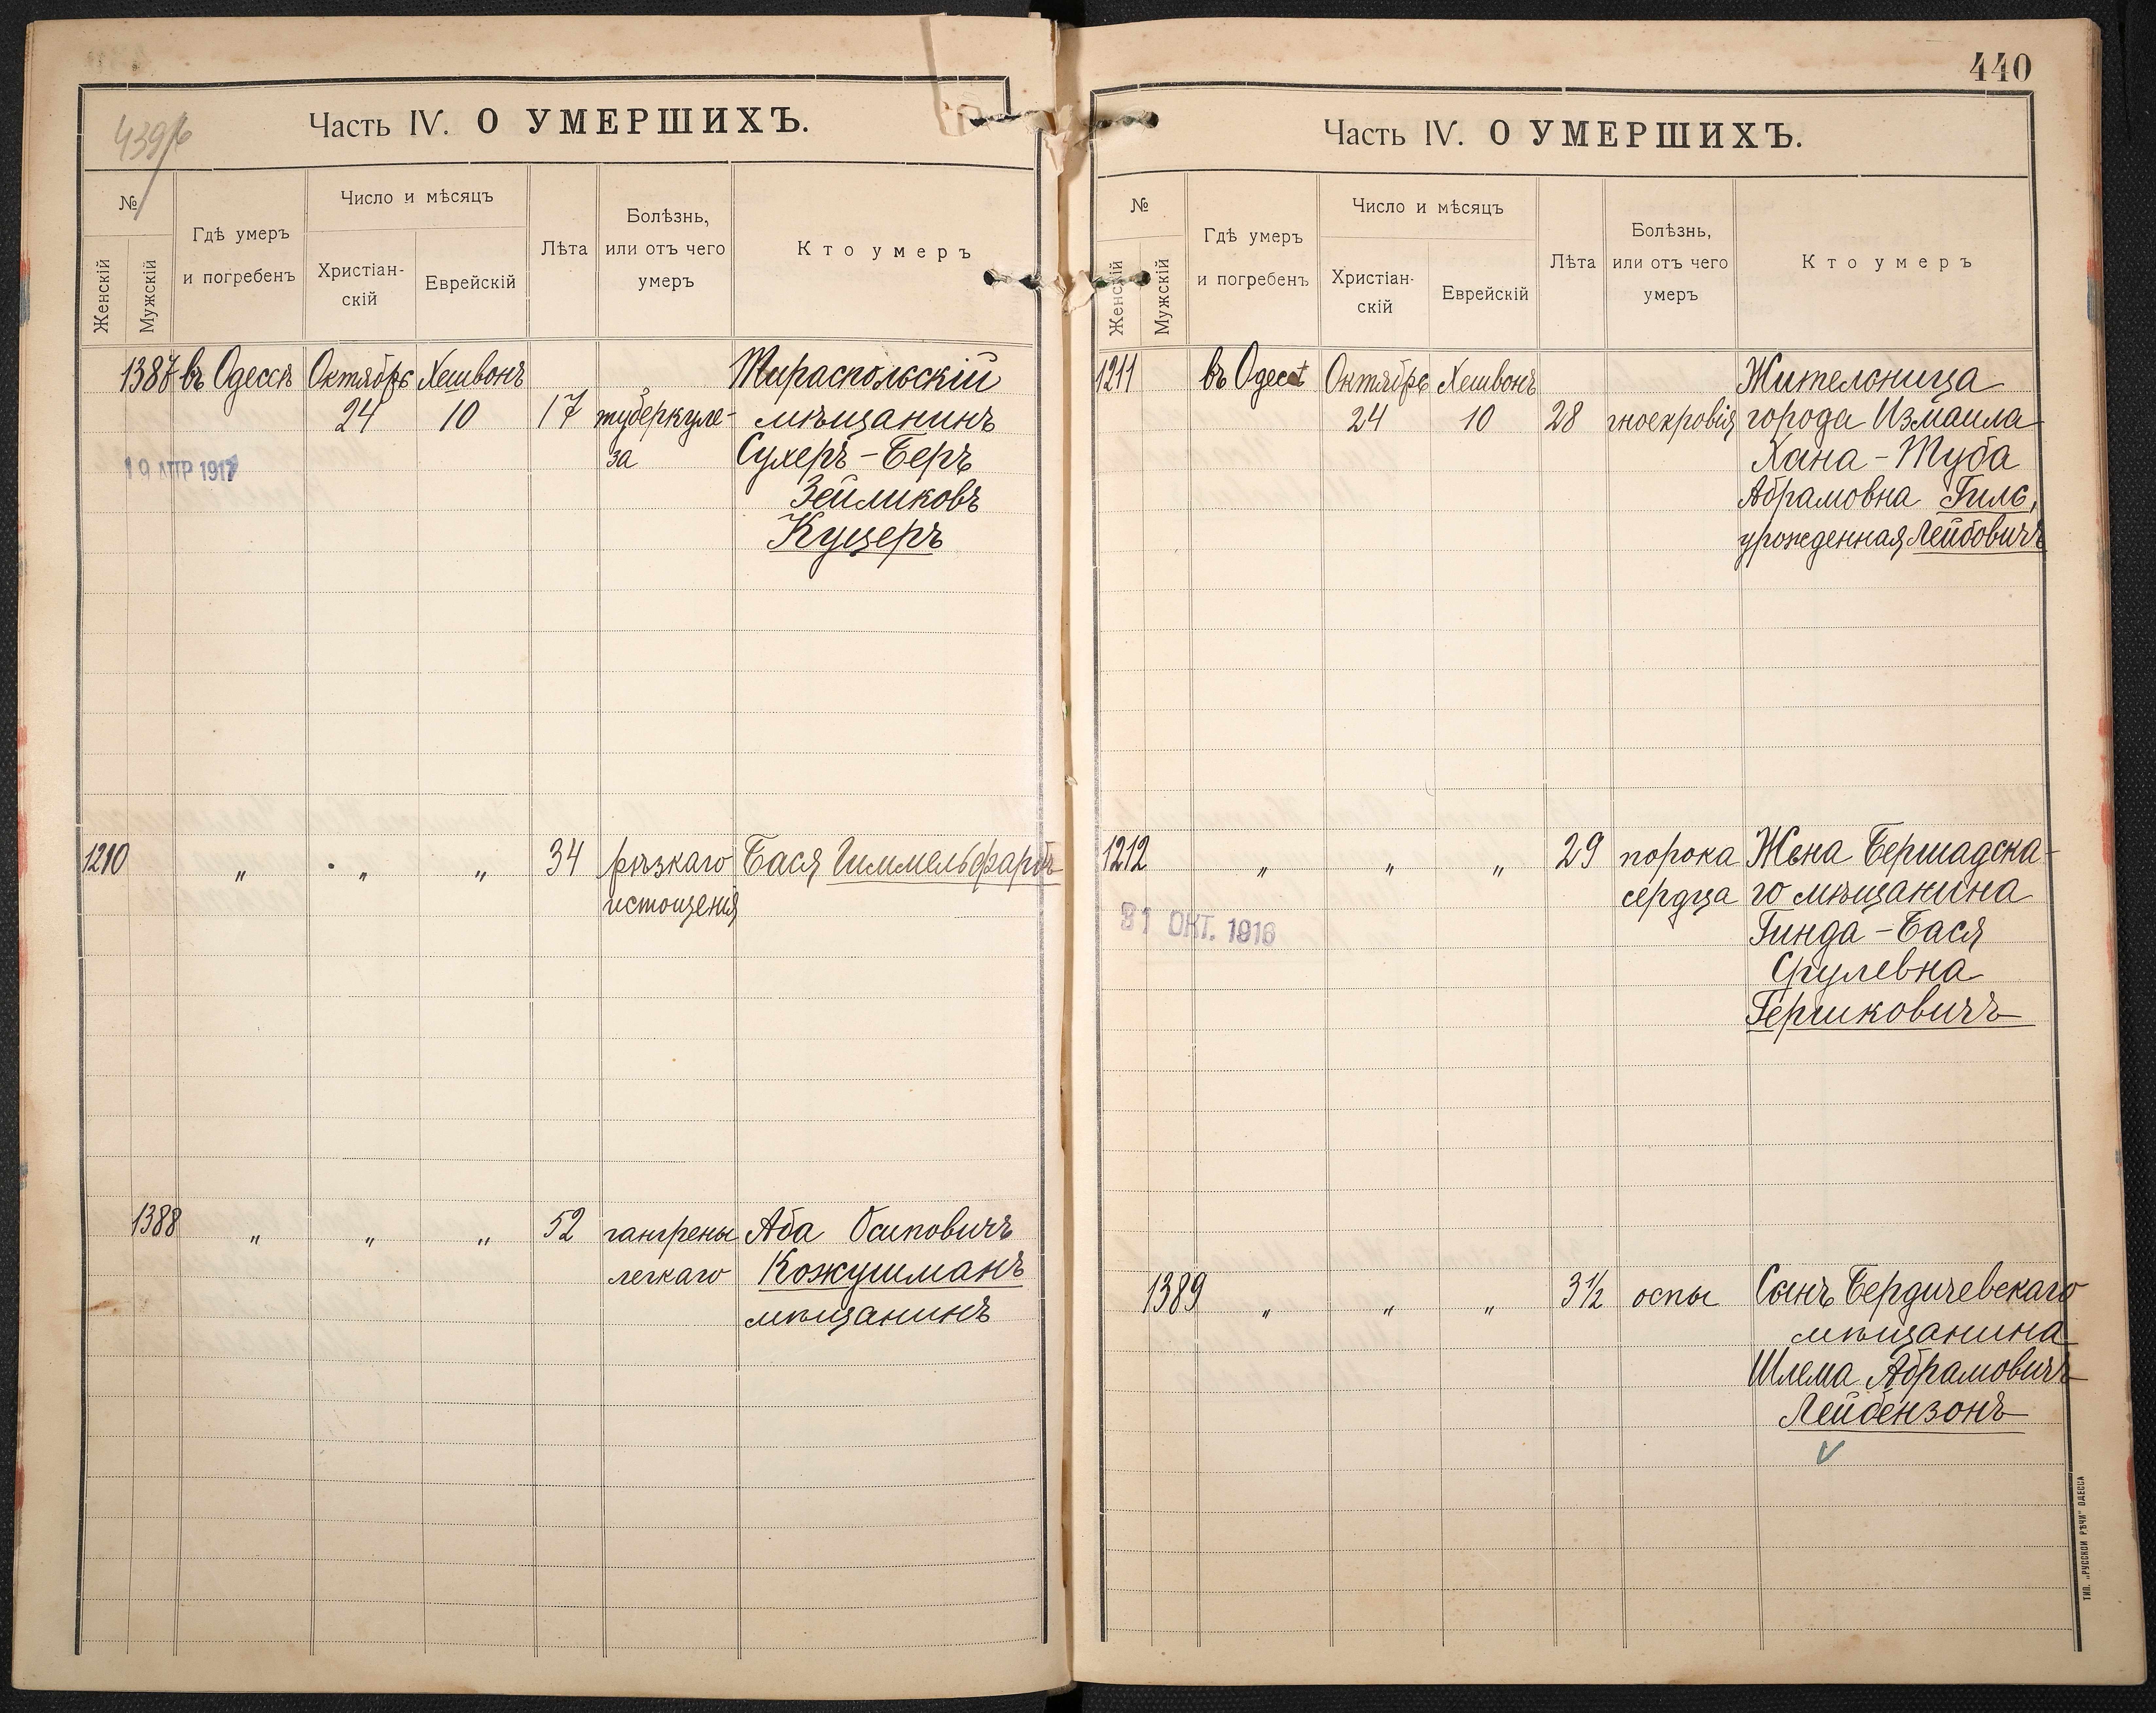 439/6
Часть IV. О УМЕРШИХЪ.
№
Женскій
Мужскій
Гдѣ умеръ
и погребенъ
Число и мѣсяцъ
Христіан-
скій
Еврейскій
Лѣта
Болѣзнь,
или отъ чего
умеръ
Кто умеръ
1387 въ Одессѣ Октябрь Хешвонъ Тираспольскій
24 10 17 туберкуле- мѣщанинъ
за Сухеръ-Беръ
19 АПР 1917
Зейликовъ
Куцеръ
1210 „ „ „ 34 рѣзкаго Бася Гиммельфарбъ
истощенія
1388 „ „ „ 52 гангрены Аба Осиповичъ
легкаго Кожушманъ
мѣщанинъ
440
Часть IV. О УМЕРШИХЪ.
№
Женскій
Мужскій
Гдѣ умеръ
и погребенъ
Число и мѣсяцъ
Христіан-
скій
Еврейскій
Лѣта
Болѣзнь,
или отъ чего
умеръ
Кто умеръ
1211 въ Одессѣ Октябрь Хешвонъ Жительница
24 10 28 гноекровія города Измаила
Хана-Туба
Абрамовна Гиль,
урожденная Лейбовичъ
1212 „ „ „ 29 порока Жена Бершадска-
сердца го мѣщанина
31 ОКТ. 1916
Гинда-Бася
Срулевна
Гершковичъ
1389 „ „ „ 3½ оспы Сынъ Бердичевскаго
мѣщанина
Шлема Абрамовичъ
Лейбензонъ
ТИП. „РУССКОЙ РѢЧИ" ОДЕССА